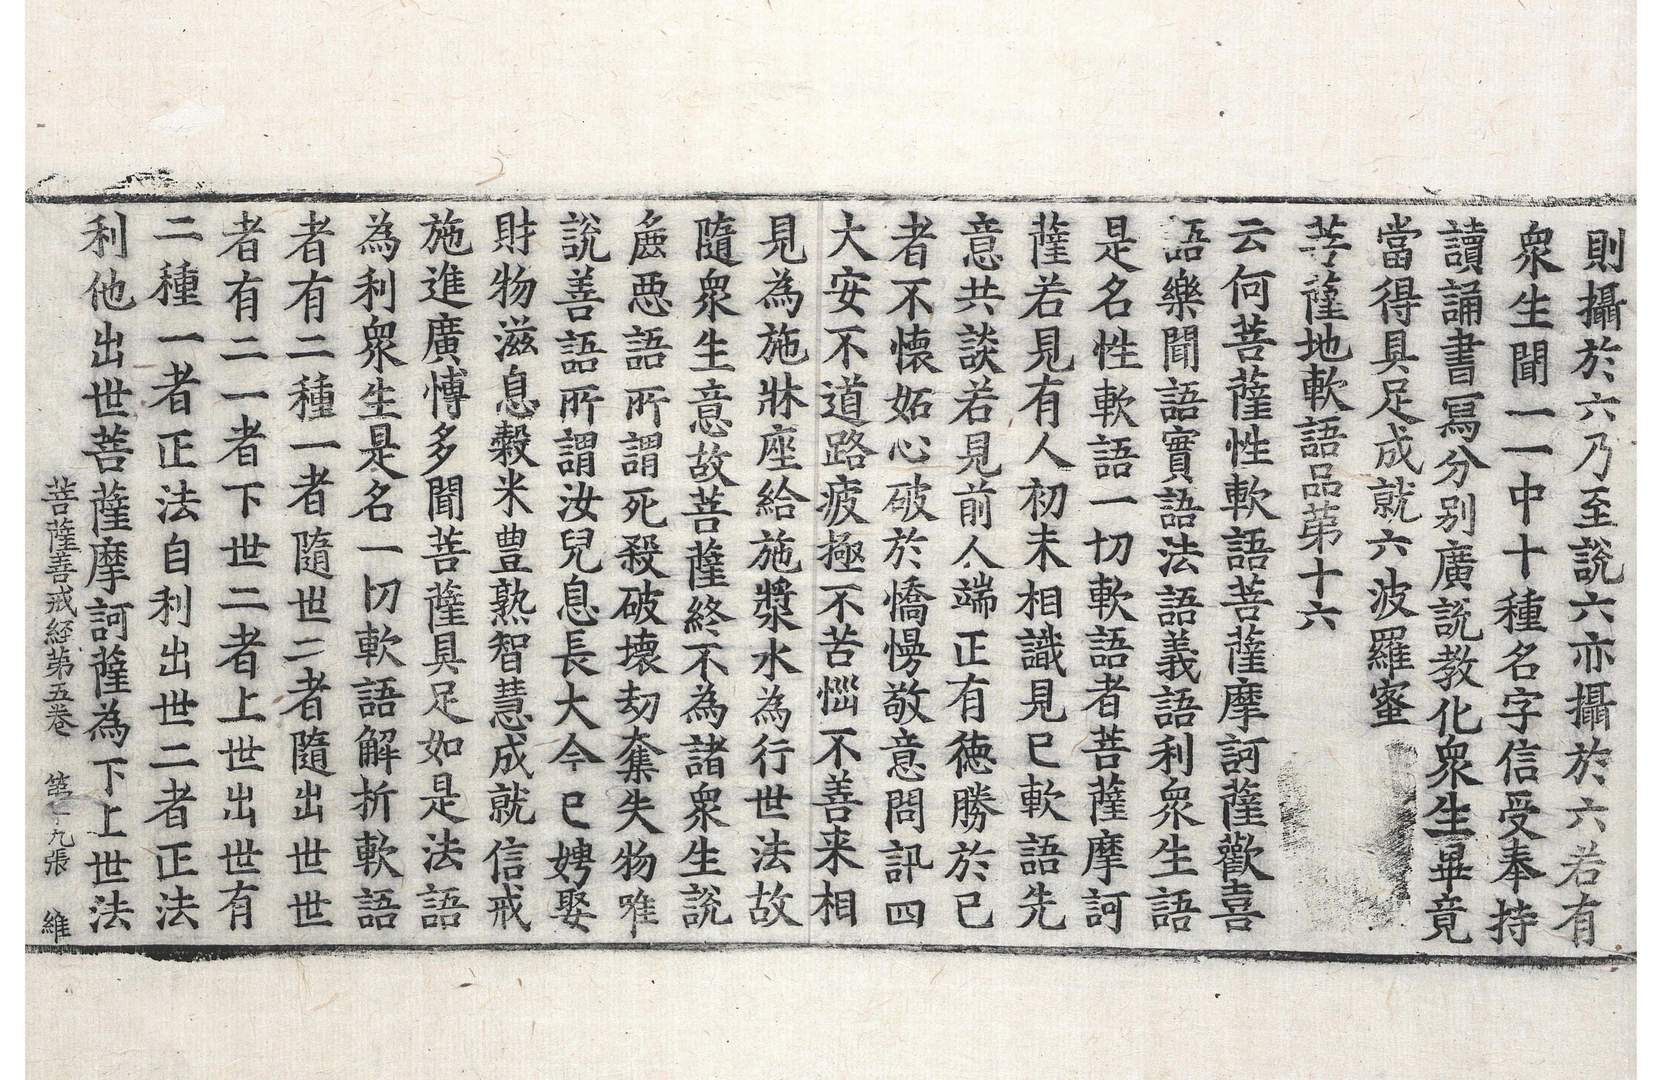 則攝於六乃至說六亦攝於六若有
衆生聞一一中十種名字信受奉持
讀誦書寫分別廣說教化衆生畢竟
當得具足成就六波羅蜜
菩薩地軟語品第十六
云何菩薩性軟語菩薩摩訶薩歡喜
語樂聞語實語法語義語利衆生語
是名性軟語一切軟語者菩薩摩訶
薩若見有人初未相識見已軟語先
意共談若見前人端正有德勝於己
者不懷妬心破於憍慢敬意問訊四
大安不道路疲極不苦惱不善来相
見為施牀座給施漿水為行世法故
隨衆生意故菩薩終不為諸衆生說
麁惡語所謂死殺破壞劫奪失物唯
說善語所謂汝兒息長大今已娉娶
財物滋息穀米豊熟智慧成就信戒
施進廣愽多聞菩薩具足如是法語
為利衆生是名一切軟語解折軟語
者有二種一者隨世二者隨出世世
者有二一者下世二者上世出世有
二種一者正法自利出世二者正法
利他出世菩薩摩訶薩為下上世法
菩薩善戒経第五卷 第十九張 維